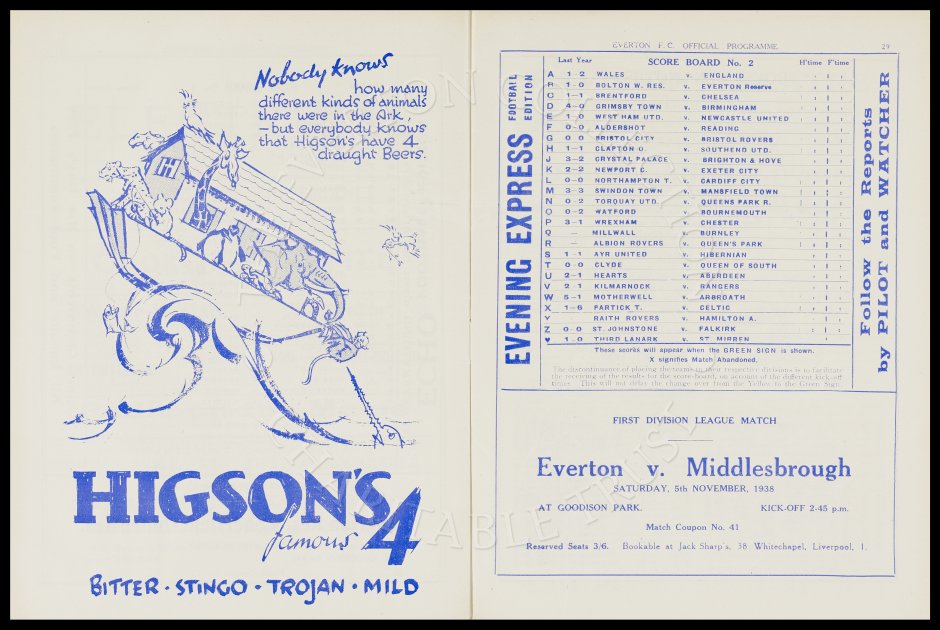 Nobody knows
how many
different kinds of animals
there were in the Ark,
— but everybody knows
that Higson's have 4
draught Beers.
HIGSON'S
famous 4
BITTER · STINGO · TROJAN · MILD
EVERTON F.C. OFFICIAL PROGRAMME 29
EVENING EXPRESS FOOTBALL EDITION
Last Year SCORE BOARD No. 2 H'time F'time
A 1-2 WALES v. ENGLAND
B 1-0 BOLTON W. RES. v. EVERTON Reserve
C 1-1 BRENTFORD v. CHELSEA
D 4-0 GRIMSBY TOWN v. BIRMINGHAM
E 1-0 WEST HAM UTD. v. NEWCASTLE UNITED
F 0-0 ALDERSHOT v. READING
G 0-0 BRISTOL CITY v. BRISTOL ROVERS
H 1-1 CLAPTON O. v. SOUTHEND UTD.
J 3-2 CRYSTAL PALACE v. BRIGHTON & HOVE
K 2-2 NEWPORT C. v. EXETER CITY
L 0-0 NORTHAMPTON T. v. CARDIFF CITY
M 3-3 SWINDON TOWN v. MANSFIELD TOWN
N 0-2 TORQUAY UTD. v. QUEENS PARK R.
O 0-2 WATFORD v. BOURNEMOUTH
P 3-1 WREXHAM v. CHESTER
Q — MILLWALL v. BURNLEY
R — ALBION ROVERS v. QUEEN'S PARK
S 1-1 AYR UNITED v. HIBERNIAN
T 0-0 CLYDE v. QUEEN OF SOUTH
U 2-1 HEARTS v. ABERDEEN
V 2-1 KILMARNOCK v. RANGERS
W 5-1 MOTHERWELL v. ARBROATH
X 1-6 PARTICK T. v. CELTIC
Y RAITH ROVERS v. HAMILTON A.
Z 0-0 ST. JOHNSTONE v. FALKIRK
♥ 1-0 THIRD LANARK v. ST. MIRREN
These scores will appear when the GREEN SIGN is shown.
X signifies Match Abandoned.
The discontinuance of placing the teams in their respective divisions is to facilitate
the receiving of the results for the score-board, on account of the different kick-off
times. This will not delay the change over from the Yellow to the Green Sign.
Follow the Reports
by PILOT and WATCHER
FIRST DIVISION LEAGUE MATCH
Everton v. Middlesbrough
SATURDAY, 5th NOVEMBER, 1938
AT GOODISON PARK. KICK-OFF 2-45 p.m.
Match Coupon No. 41
Reserved Seats 3/6. Bookable at Jack Sharp's, 38 Whitechapel, Liverpool, 1.